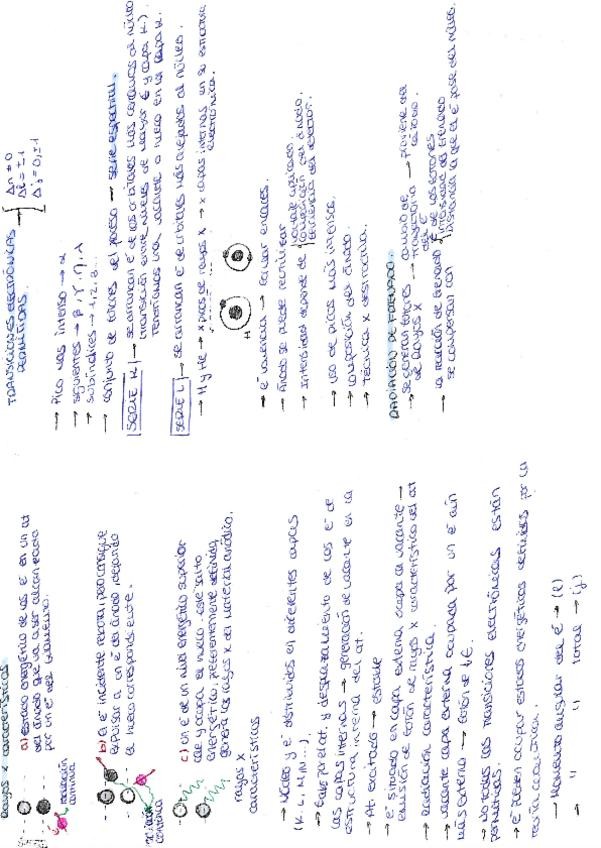 Rayos x característicos
a) estado energético de los e⁻ en un at
del ánodo que va a ser alcanzado
por un e⁻ del filamento.
radiación
continua
b) El e⁻ incidente rebota, pero consigue
expulsar a un e⁻ del ánodo dejando
el hueco correspondiente.
c) un e⁻ de un nivel energético superior
cae y ocupa el hueco. este salto
energético, perfectamente definido,
genera los rayos x del material anódico.
rayos x
característicos
→ Núcleo y e⁻ distribuidos en diferentes capas
(K, L, M, N...)
las capas internas → generación de vacante en la
estructura interna del at.
→ At excitado → estable
→ e⁻ situado en capa externa ocupa la vacante →
emisión de fotón de rayos x característico del at
→ Radiación característica.
→ vacante capa externa ocupada por un e⁻ aún
más externo → fotón de
→ No todas las transiciones electrónicas están
permitidas.
→ e⁻ pueden ocupar estados energéticos definidos por la
teoría cuántica.
→ Momento angular del e⁻ → (l)
→ " " total → (j)
TRANSICIONES ELECTRÓNICAS
PERMITIDAS.
Δn ≠ 0
Δl = ±1
Δj = 0, ±1
→ Pico más intenso → α
→ siguientes → β, γ, η, λ
→ subíndices → 1, 2, 3...
→ conjunto de picos del proceso → serie espectral.
SERIE K → se arrancan e⁻ de los orbitales más cercanos al núcleo
(transición entre niveles de mayor E y capa K.)
Tendríamos una vacante o hueco en la capa K.
SERIE L → se arrancan e⁻ de orbitales más alejados al núcleo.
→ H y He → x picos de rayos X → x capas internas en su estructura
electrónica.
H
→ e⁻ valencia → formar enlaces.
→ Ánodo se puede reutilizar
→ Intensidad depende de
voltaje aplicado.
composición del ánodo.
eficiencia del detector.
→ uso de picos más intensos.
→ composición del ánodo.
→ Técnica x destructiva.
RADIACIÓN DE FRENADO.
→ se generan fotones
de Rayos X
cambio de
trayectoria
del e⁻
→ proviene del
cátodo.
→ la radiación de frenado
se compensan con
E de los fotones
intensidad del frenado
distancia a la que el e⁻ pase del núcleo.